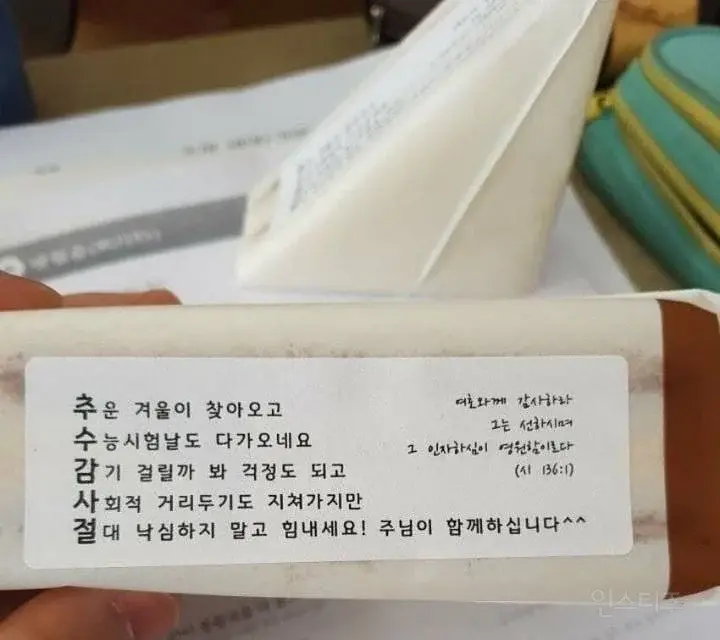 추운 겨울이 찾아오고
수능시험날도 다가오네요
감기 걸릴까 봐 걱정도 되고
사회적 거리두기도 지쳐가지만
절대 낙심하지 말고 힘내세요! 주님이 함께하십니다^^
여호와께 감사하라
그는 선하시며
그 인자하심이 영원함이로다
(시 136:1)
인스티즈